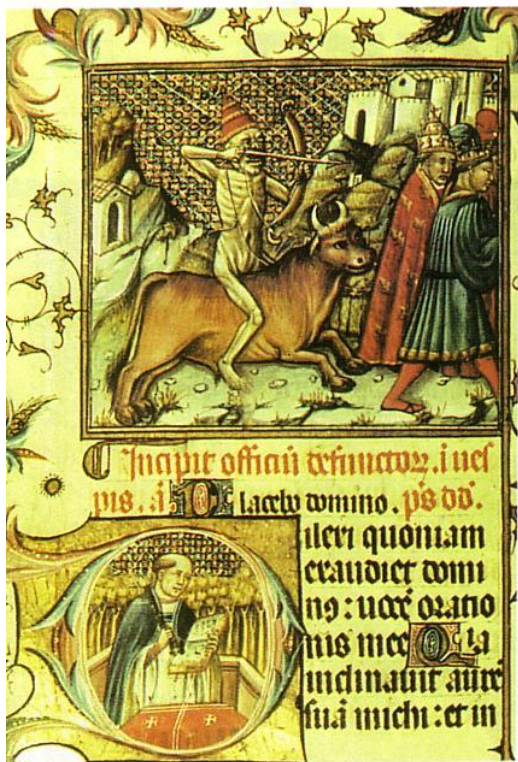 Incipit officiū defunctoꝝ. i ues
pis. ā. Placebo domino. ps dd.
Dilexi quoniam
exaudiet domi
nꝰ: uocē oratio
nis mee Qia
inclinauit aurē
suā michi: et in